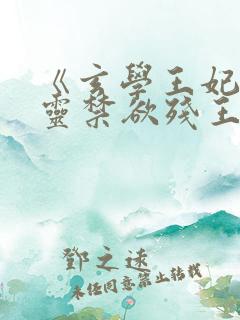 《玄學王妃
靈禁欲殘王
鄧之遠
未經同意禁止轉載